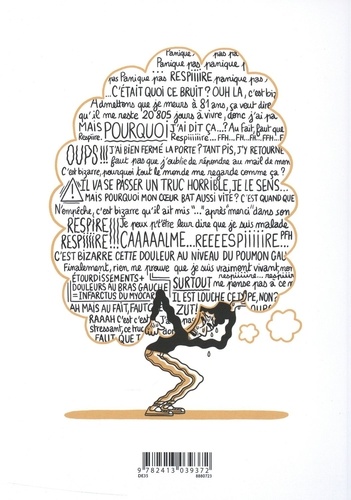 Panique pas pa
Panique pas panique pas
pas Panique pas RESPIIIIRE panique pas,
... C'ÉTAIT QUOI CE BRUIT? OUH LA, C'EST BIZ
Admettons que je meurs à 81 ans, ça veut dire
qu'il me reste 20 805 jours à vivre, donc j'ai pa
MAIS POURQUOI J'AI DIT ÇA...? Au Fait, faut que
Respire. Respiiiiiire... FFH... FFH... F
OUPS!!! J'AI BIEN FERMÉ LA PORTE? TANT PIS, J'Y RETOURNE
faut pas que j'oublie de répondre au mail de mon
C'est bizarre, pourquoi tout le monde me regarde comme ça?
! IL VA SE PASSER UN TRUC HORRIBLE, JE LE SENS...
MAIS POURQUOI MON CŒUR BAT AUSSI VITE? C'EST QUAND QUE
N'empêche, c'est bizarre qu'il ait mis "..." après "merci" dans son
RESPIRE!!! Je peux p't'être leur dire que je suis malade
RESPIIIIRE!!! CAAAAALME...REEEESPIIIIIRE. PFH
C'EST BIZARRE CETTE DOULEUR AU NIVEAU DU POUMON GAU
Finalement, rien me prouve que je suis vraiment vivant, non
respiiiire... respiiire
ÉTOURDISSEMENTS +
DOULEURS AU BRAS GAUCHE
= INFARCTUS DU MYOCAR
SURTOUT me pense pas à ce
IL EST LOUCHE CE TYPE, NON?
AH MAIS AU FAIT, FAUT ZUT!
RAAAH C'est c'est
stressant, ce truc
FAUT QUE T
9 782413 039372
DE33 8880723